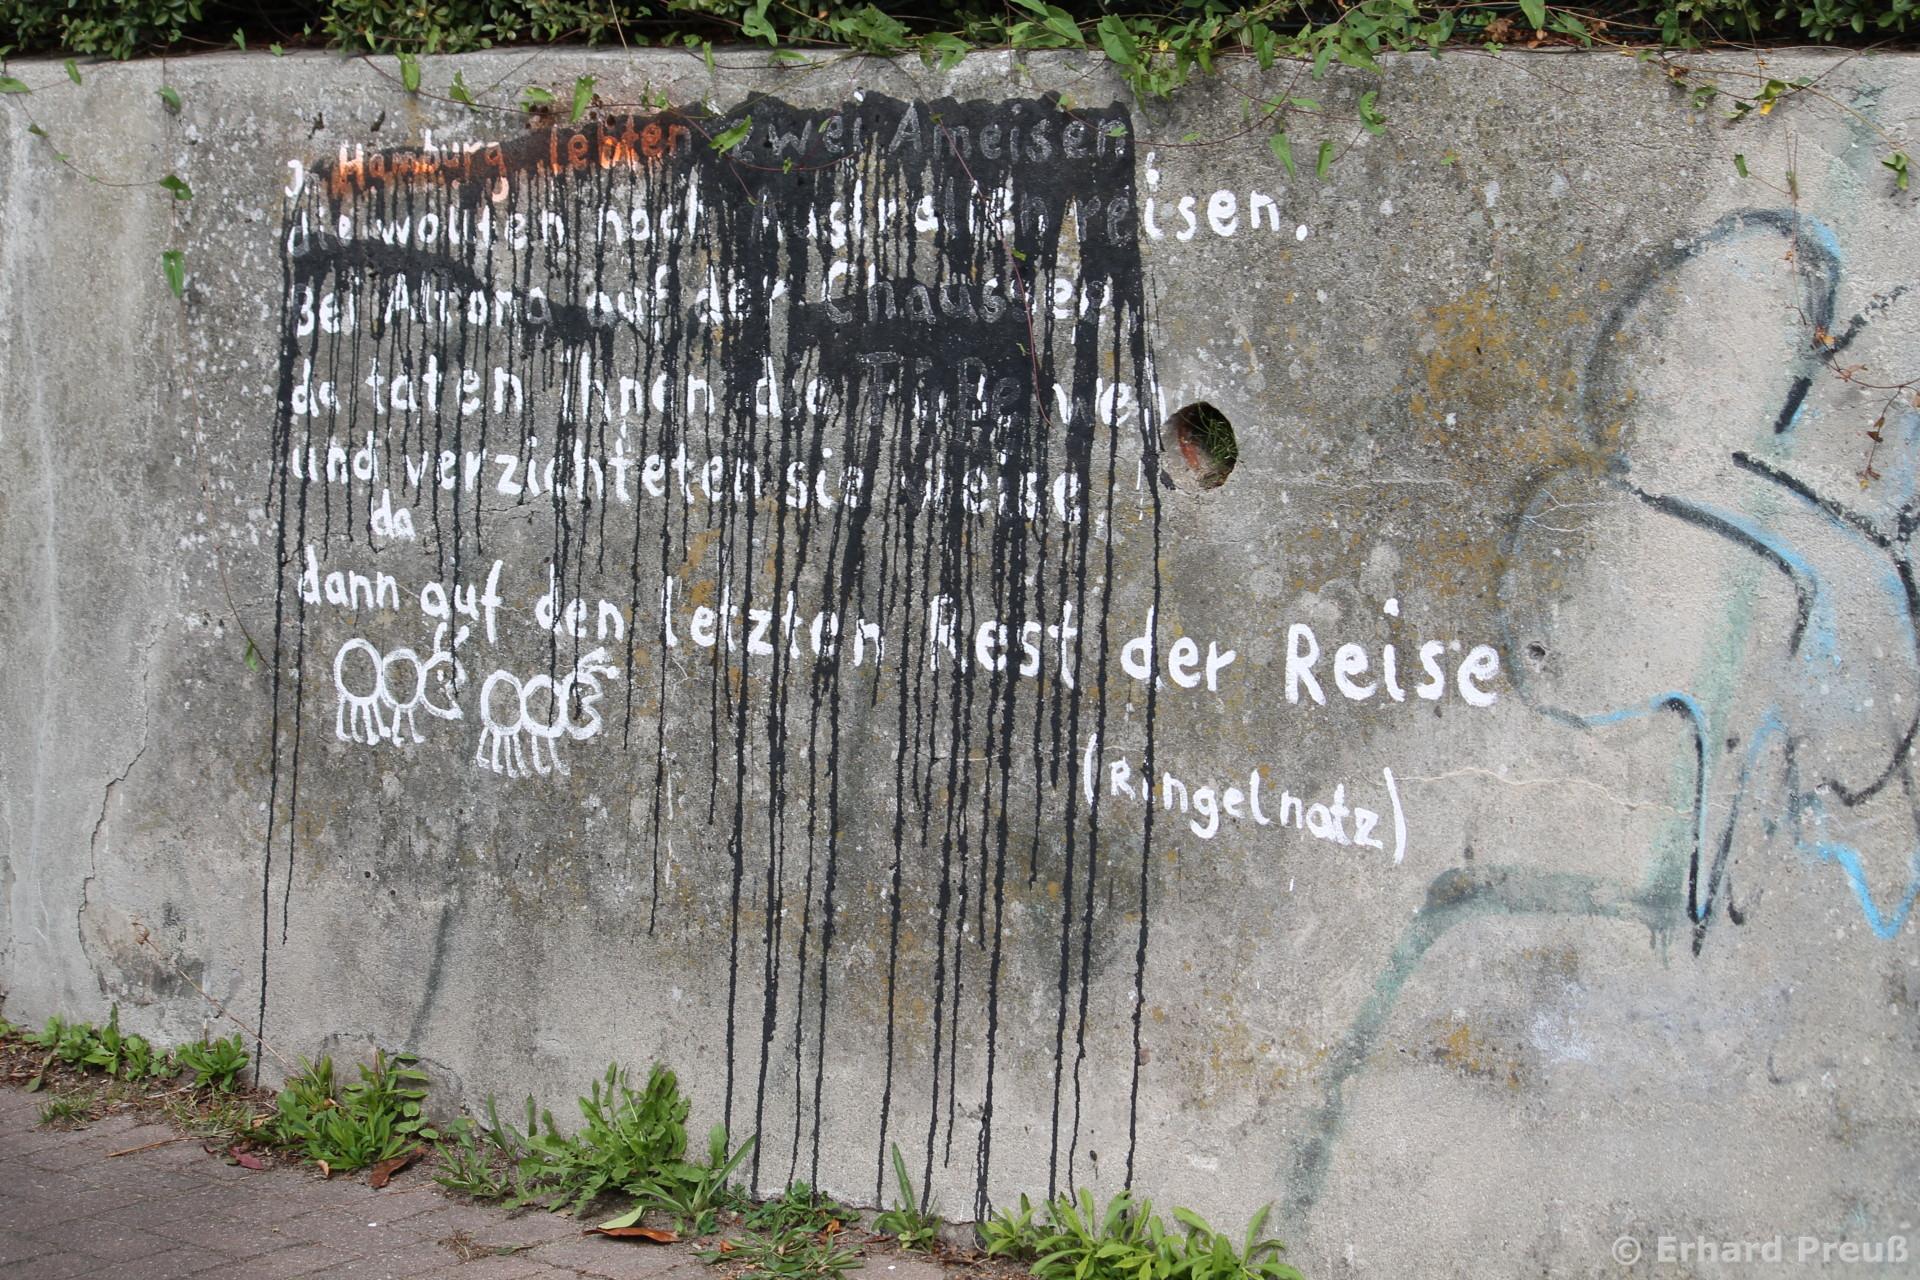 In Hamburg lebten zwei Ameisen
die wollten nach Australien reisen.
Bei Altona auf der Chaussee,
da taten ihnen die Füße weh
und verzichteten sie weise
da
dann auf den letzten Rest der Reise
(Ringelnatz)
© Erhard Preuß